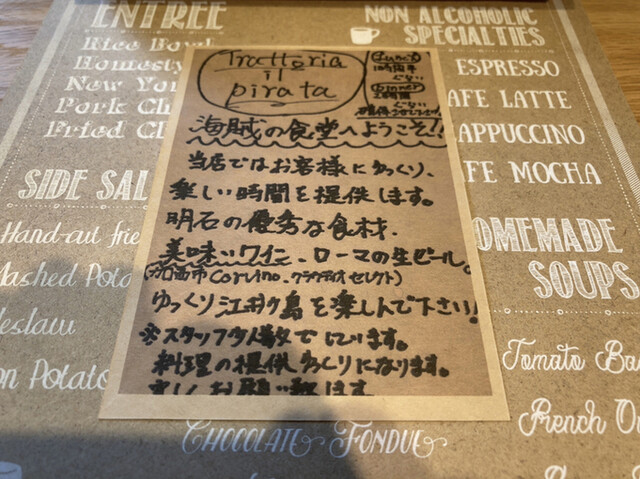 ENTRÉE
Rice Bowl
Homesty
New Yor
Pork Ch
Fried Ch
SIDE SAL
Hand-cut frie
Mashed Pota
leslaw
on Potato
NON ALCOHOLIC
SPECIALTIES
ESPRESSO
AFE LATTE
APPUCCINO
FE MOCHA
OMEMADE
SOUPS
Tomato Ba
French On
CHOCOLATE FONDUE
Trattoria
il
pirata
Lunch
1時間半
ぐらい
Dinner
2時間
ぐらい
海賊の食堂へようこそ!!
当店ではお客様にゆっくり、
楽しい時間を提供します。
明石の優秀な食材、
美味いワイン、ローマの生ビール。
セレクト)
ゆっくり江井ヶ島を楽しんで下さい!
※スタッフ少人数でしています。
料理の提供ゆっくりになります。
お願い致します